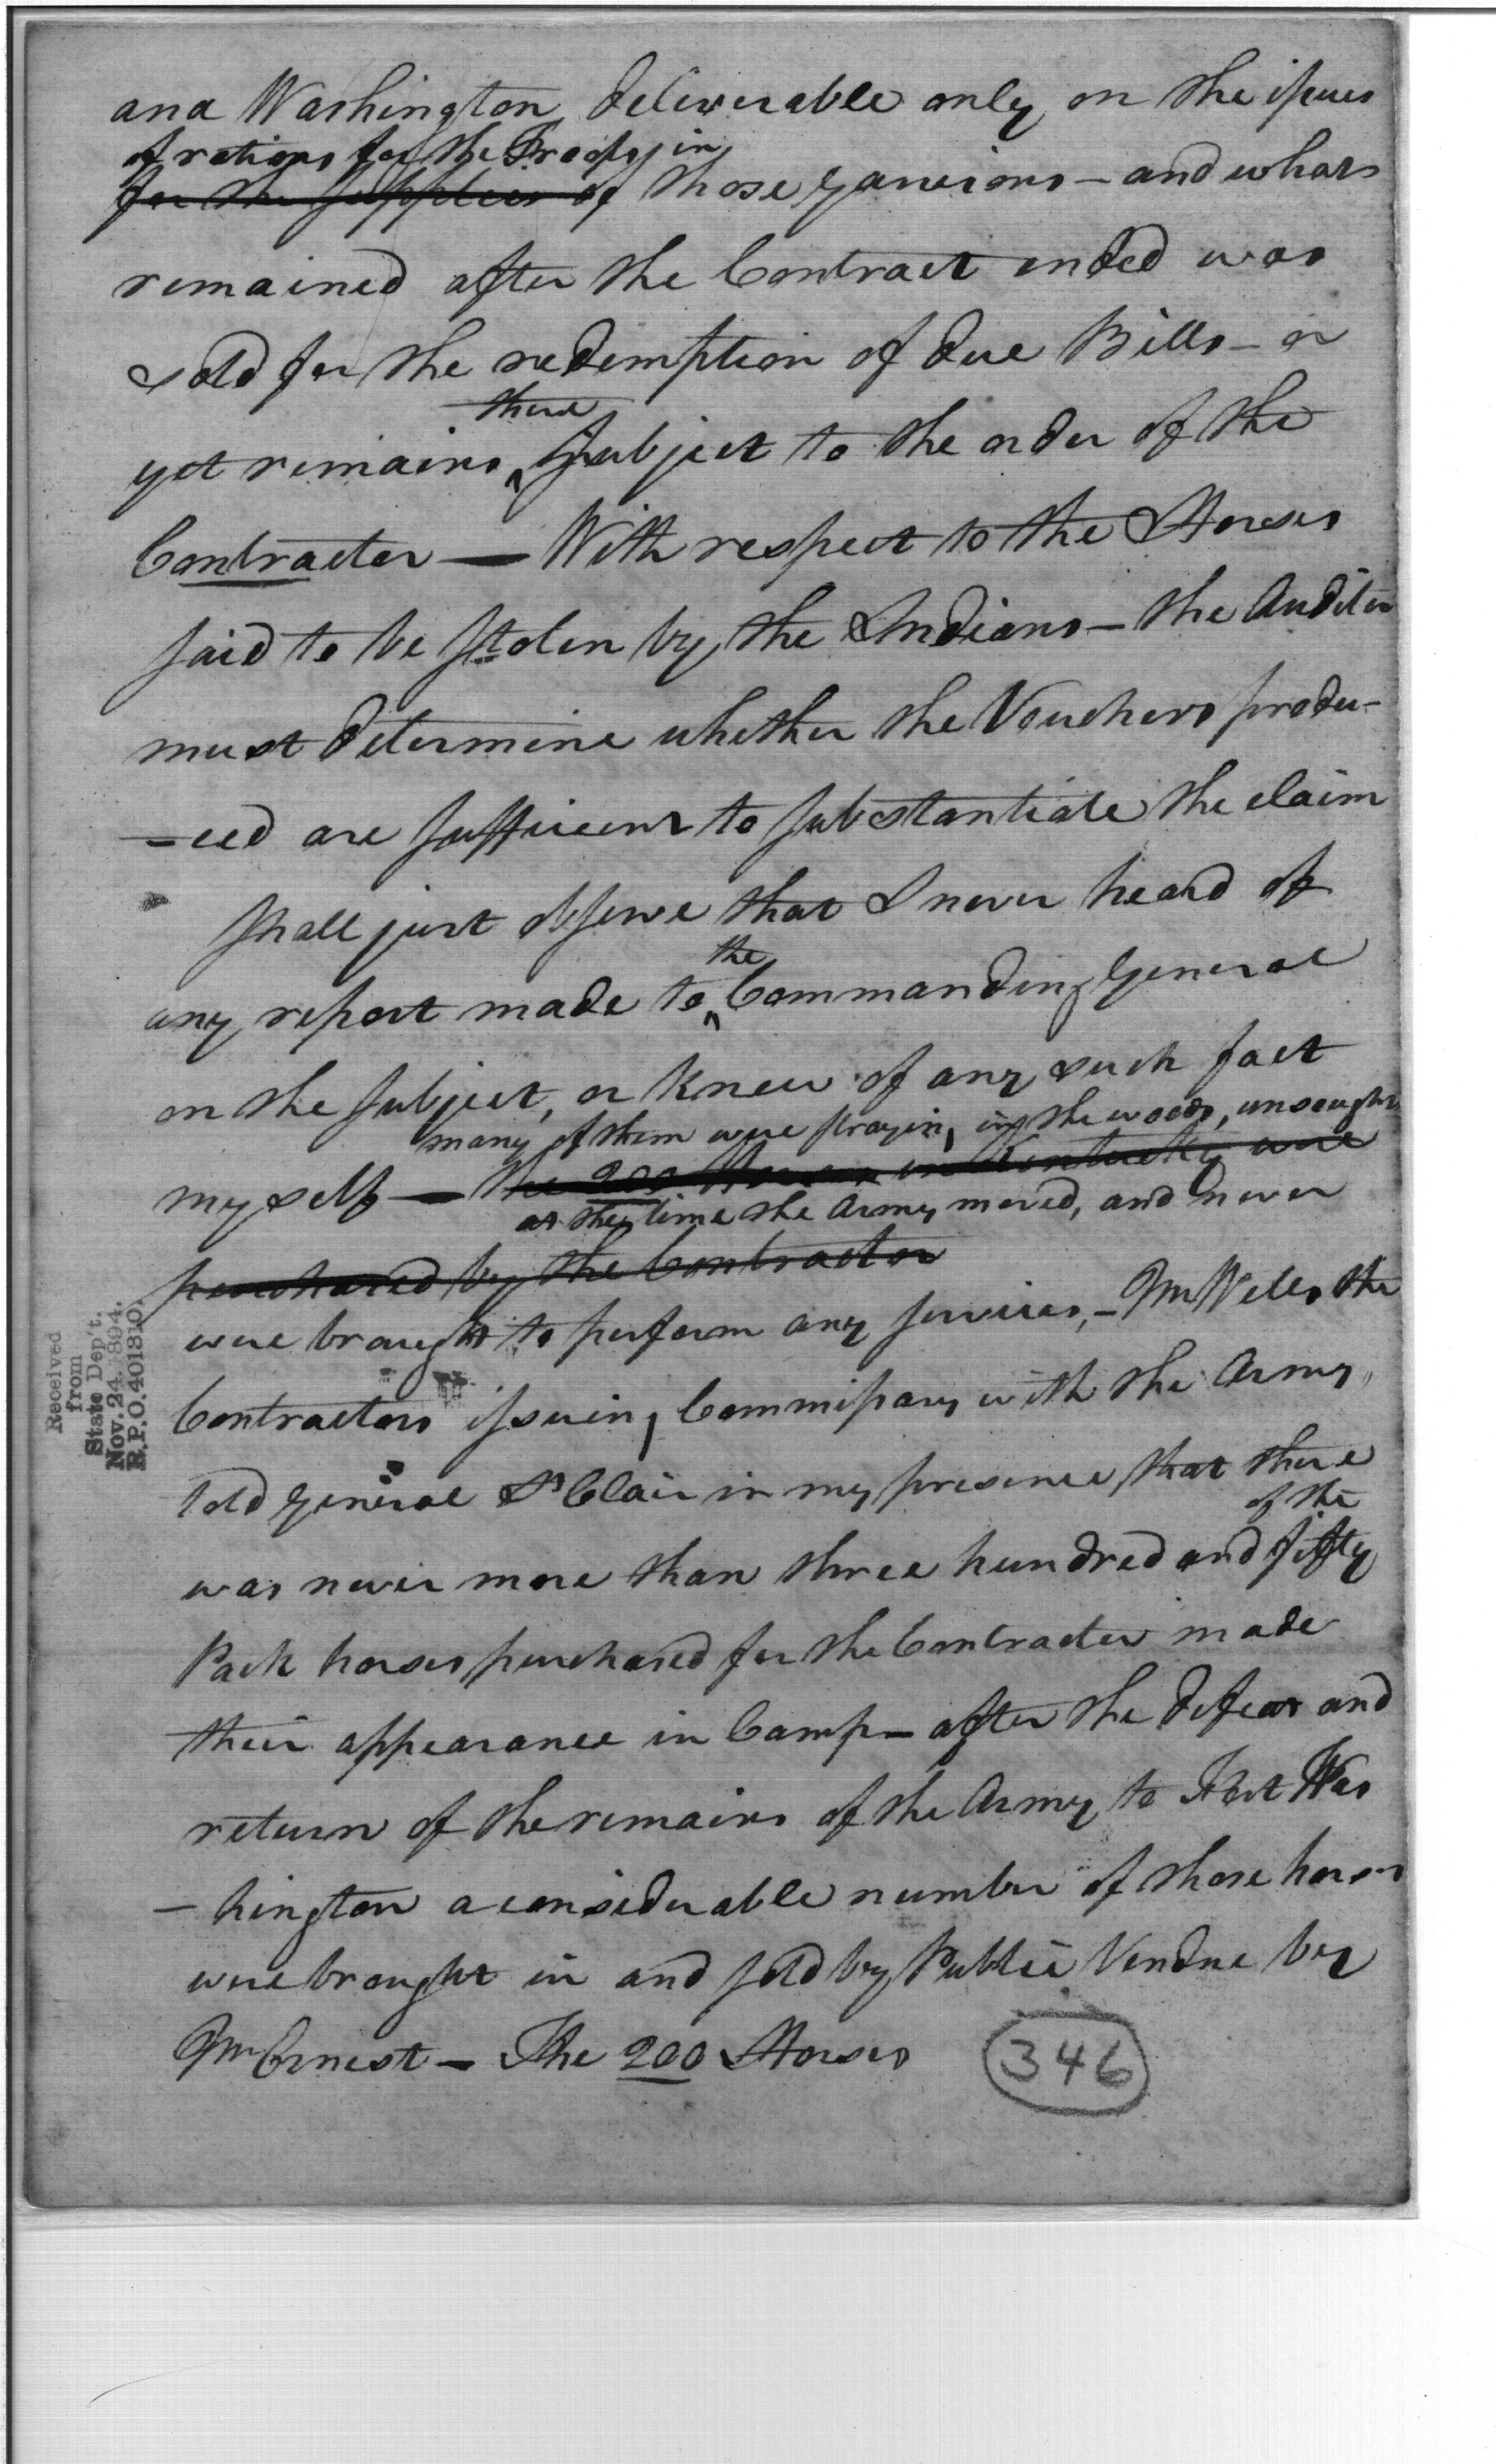 and Washington, deliverable only on the issues
of rations for the Troops in
for the supplies of those garrisons — and what
remained after the Contract ended was
sold for the redemption of due Bills — or
there
yet remains ‸ subject to the order of the
Contractor — With respect to the Horses
said to be stolen by the Indians — the Auditor
must determine whether the Vouchers produ-
-ced are sufficient to substantiate the claim
shall just observe that I never heard of
the
any report made to ‸ Commanding General
on the subject, or knew of any such fact
many of them were straying in the woods, unsought
myself — The 200 Horses in Kentucky were
at the time the Army moved, and never
purchased by the Contractor
were brought to perform any services, — Mr Wells the
Contractors issuing Commissary with the Army,
told General St Clair in my presence, that there
of the
was never more than three hundred and fifty
Pack horses purchased for the Contractor made
their appearance in Camp — after the defeat and
return of the remains of the Army to Fort Was
-hington a considerable number of those horses
were brought in and sold by Public Vendue by
Mr Ernest — The 200 Horses
346
Received
from
State Dep't.
Nov. 24, 1894.
R.P.O. 401310.